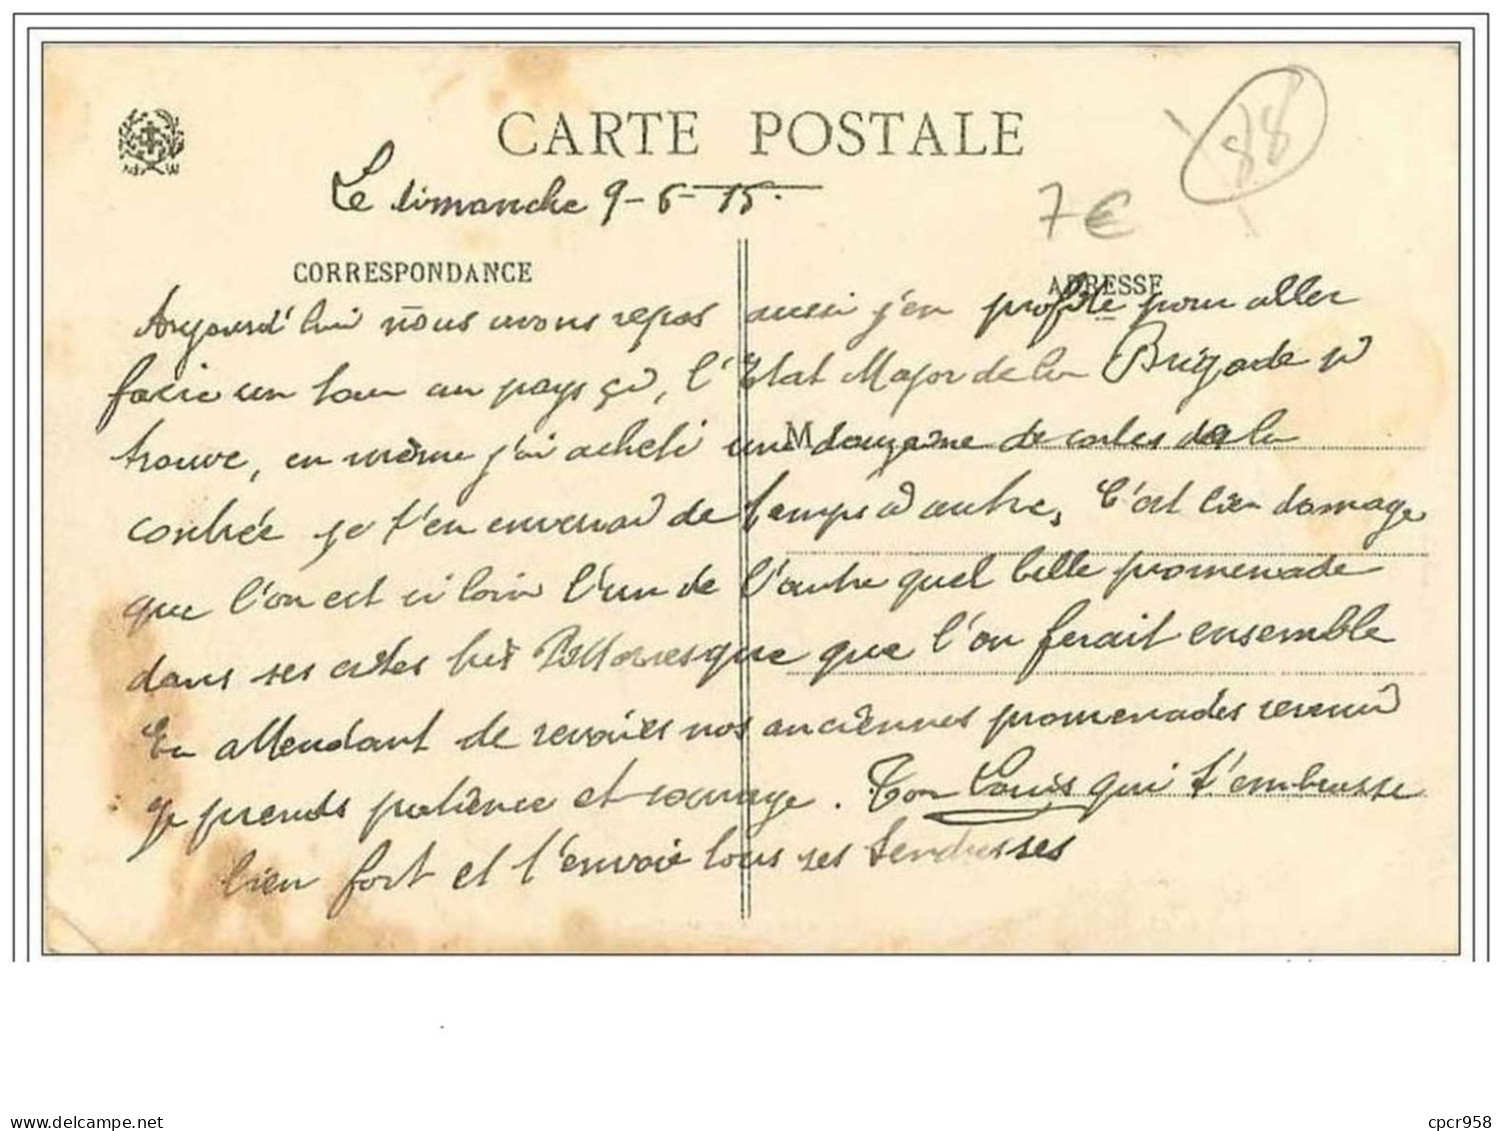 CARTE POSTALE
88
Le dimanche 9-6-15.
7€
CORRESPONDANCE
ADRESSE
M
Aujourd'hui nous avons repos aussi j'en profite pour aller
faire un tour au pays où l'Etat Major de la Brigade se
trouve, en même j'ai acheté une douzaine de cartes de la
contrée je t'en enverrai de temps à autre, C'est bien domage
que l'on est si loin l'un de l'autre quel belle promenade
dans ses cotes très Pittoresque que l'on ferait ensemble
En attendant de revoir nos anciennes promenades revenir
je prends patience et courage. Ton Louis qui t'embrasse
bien fort et t'envoie tous ses tendresses
cpcr958
www.delcampe.net